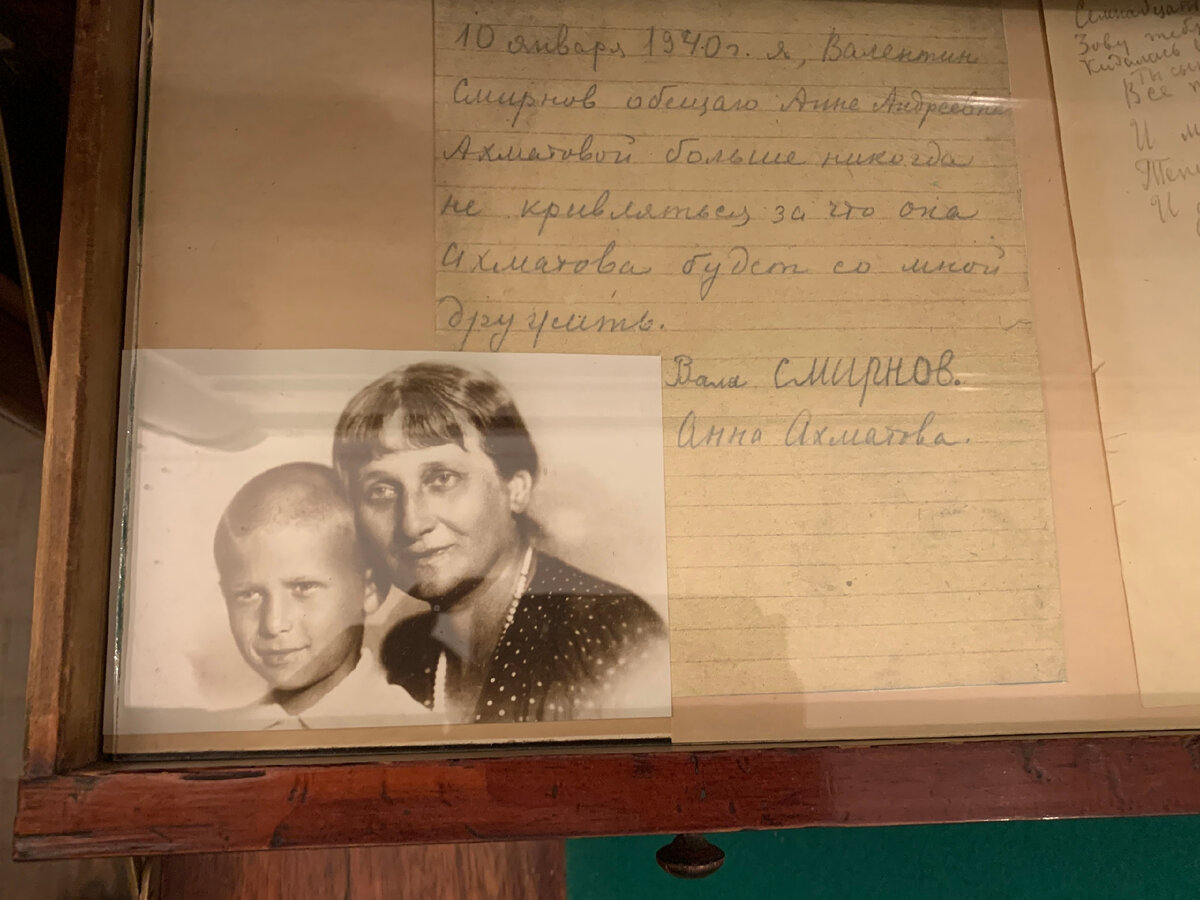 10 января 1940 г. я, Валентин
Смирнов обещаю Анне Андреевне
Ахматовой больше никогда
не кривляться за что она
Ахматова будет со мной
дружить.
Валя СМИРНОВ.
Анна Ахматова.
Семнадцать
Зову тебя
Кидалась
Ты сын
Все
И
И